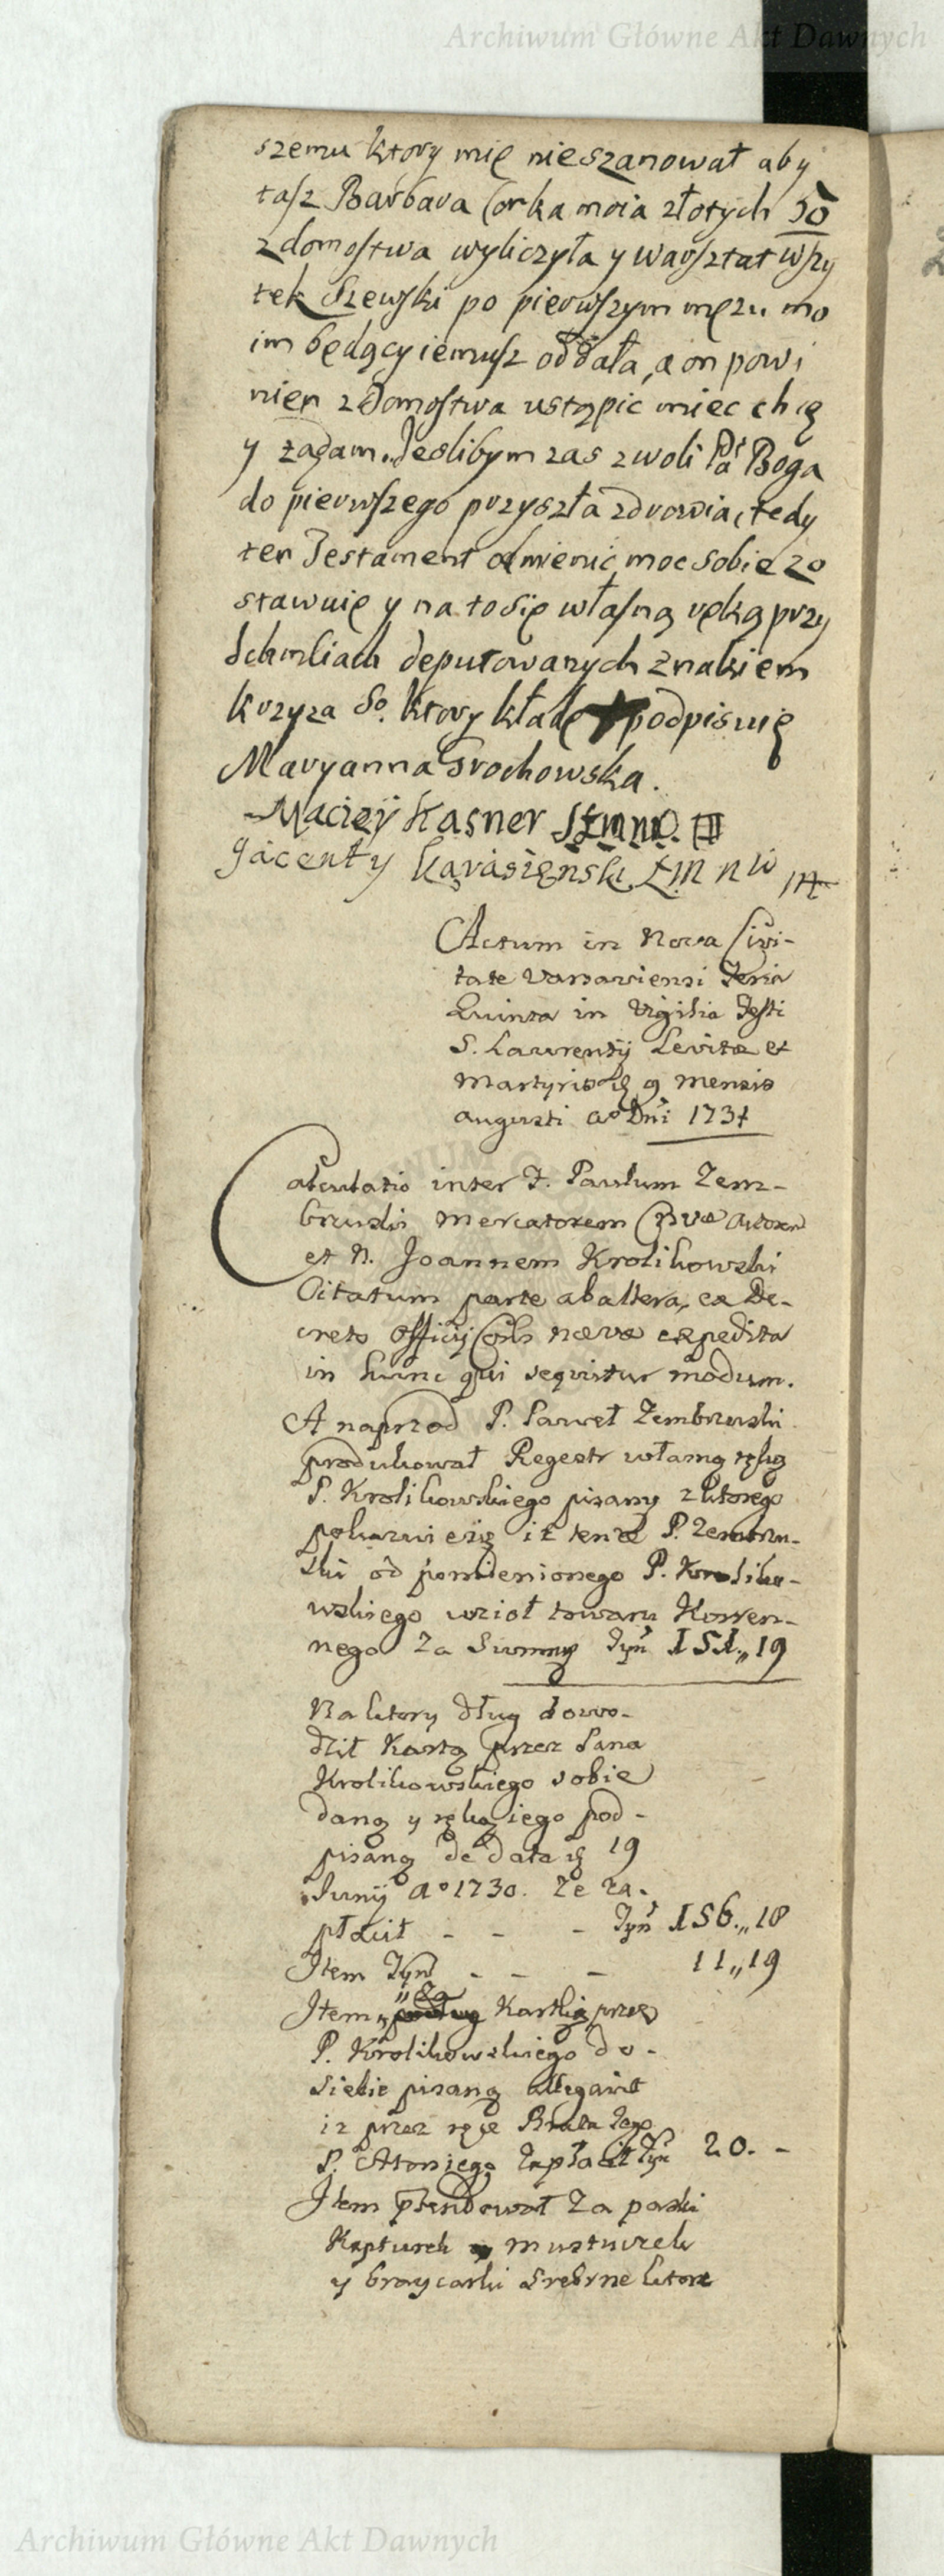 Archiwum Główne Akt Dawnych
szemu ktory mię nieszanował aby
tasz Barbara Corka moia złotych 50
zdomostwa wyliczyła y warsztat wszy
tek Szewski po pierwszym męzu mo
im będący iemusz oddała, a on powi
nien zdomostwa ustąpic miec chcę
y żądam. Jeslibym zas zwoli Pa Boga
do pierwszego przyszła zdrowia, tedy
ten Testament odmienic moc sobie zo
stawuię y na to się własną ręką przy
deputowanych znakiem
krzyza So. ktory kładę podpisuię
Maryanna Grochowska.
Maciey Kasner
Jacenty Karasięnski
Actum in Nova Civi-
tate Varsaviensi Feria
Quinta in Vigilia Festi
S. Laurentij Levitæ et
Martyris 9 mensis
augusti Ao Dni 1731
Calculatio inter F. Paulum Zem-
bruski Mercatorem
et N. Joannem Krolikowski
Citatum parte ab altera, ex De-
creto Officij novæ expedita
in hunc qui sequitur modum.
A naprzod P. Paweł Zembruski
produkował Regestr własną ręką
P. Krolikowskiego pisany z ktorego
pokazuie się iż tenże P. Zembru-
ski od pomienionego P. Kroliko-
wskiego wzioł towaru Korzen-
nego Za Summę Tyn 151,, 19
Na ktory dług dowo-
dził Kartą przez Pana
Krolikowskiego sobie
daną y ręką iego pod-
pisaną de data 19
Junij Ao 1730. Ze za-
płacił - - - Tyn 156,, 18
Item Tyn - - - 11,, 19
Item Za Kartką przez
P. Krolikowskiego do-
siebie pisaną allegował
iz przez ręce Brata Jego
P. Antoniego Zapłacił Tyn 20. -
Item Za paski
Kapturek musturek
y braycarki Srebrne ktore
Archiwum Główne Akt Dawnych